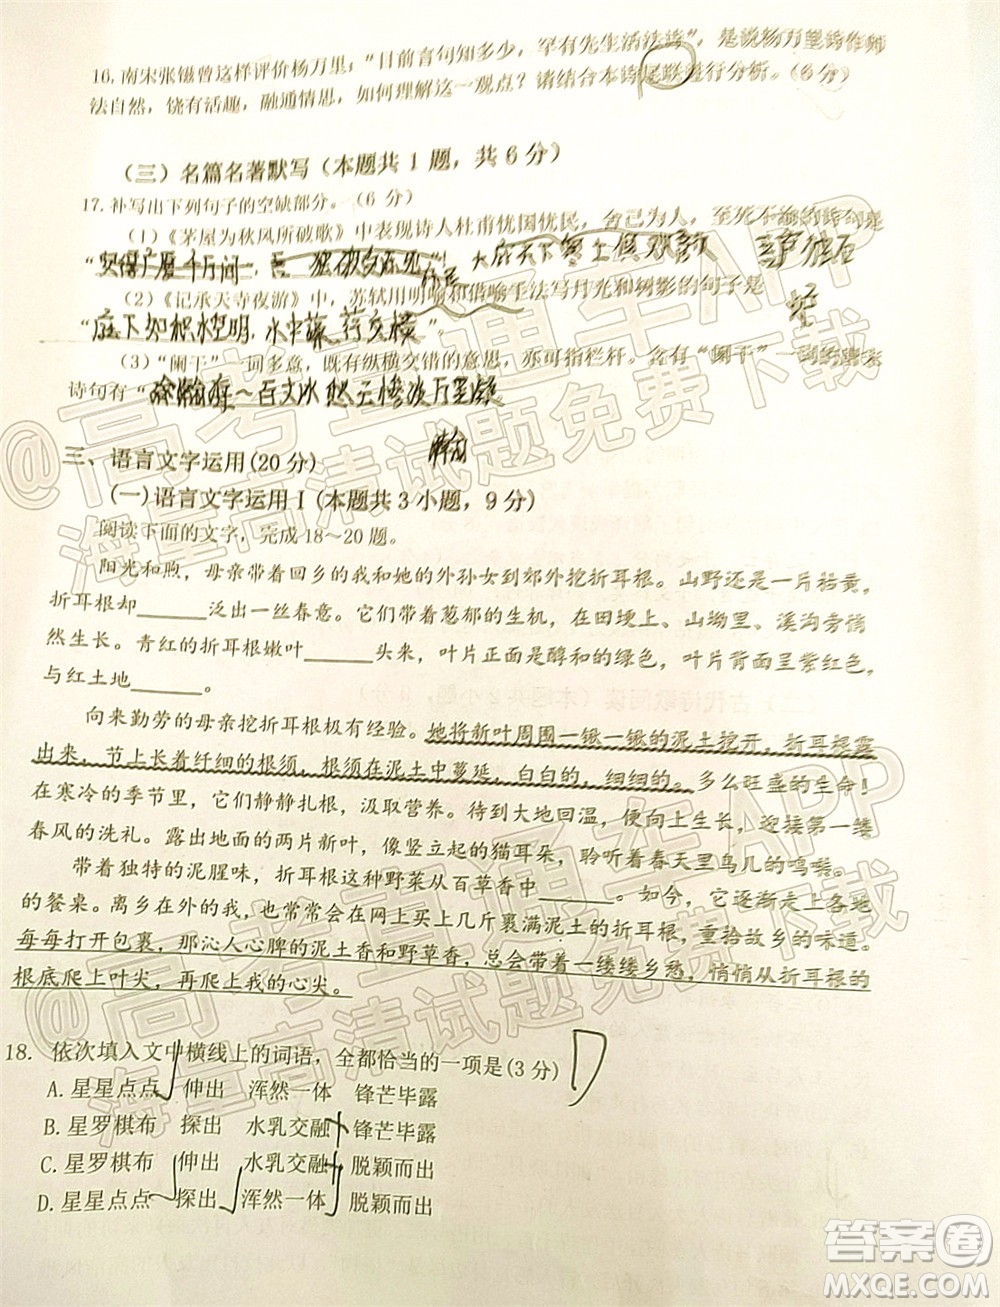 16. 南宋张镃曾这样评价杨万里：“目前言句知多少，罕有先生活法诗”，是说杨万里诗作师
法自然，饶有活趣，融通情思，如何理解这一观点？请结合本诗尾联进行分析。(6分)
（三）名篇名著默写（本题共1题，共6分）
17. 补写出下列句子的空缺部分。（6分）
（1）《茅屋为秋风所破歌》中表现诗人杜甫忧国忧民，舍己为人，至死不渝的诗句是
“安得广厦千万间”，
大庇天下寒士俱欢颜
（2）《记承天寺夜游》中，苏轼用明喻和借喻手法写月光和树影的句子是
“庭下如积水空明，水中藻荇交横”。
（3）“阑干”一词多意，既有纵横交错的意思，亦可指栏杆。含有“阑干”一词的唐宋
诗句有“ 瀚海 百丈冰 愁云惨淡万里凝
瀚
三、语言文字运用(20分)
(一)语言文字运用 I (本题共3小题，9分)
阅读下面的文字，完成18～20题。
阳光和煦，母亲带着回乡的我和她的外孙女到郊外挖折耳根。山野还是一片枯黄，
折耳根却______泛出一丝春意。它们带着葱郁的生机，在田埂上、山坳里、溪沟旁悄
然生长。青红的折耳根嫩叶______头来，叶片正面是醇和的绿色，叶片背面呈紫红色，
与红土地______。
向来勤劳的母亲挖折耳根极有经验。她将新叶周围一锹一锹的泥土挖开，折耳根露
出来，节上长着纤细的根须，根须在泥土中蔓延，白白的，细细的。多么旺盛的生命！
在寒冷的季节里，它们静静扎根，汲取营养。待到大地回温，便向上生长，迎接第一缕
春风的洗礼。露出地面的两片新叶，像竖立起的猫耳朵，聆听着春天里鸟儿的鸣啭。
带着独特的泥腥味，折耳根这种野菜从百草香中______。如今，它还走进了更多人
的餐桌。离乡在外的我，也会在网上买上几斤裹满泥土的折耳根，重拾故乡的味道。
每每打开包裹，那沁人心脾的泥土香和野草香，总会带着一缕缕乡愁，悄悄从折耳根的
根底爬上叶尖，再爬上我的心尖。
18. 依次填入文中横线上的词语，全都恰当的一项是(3分) D
A. 星星点点 伸出 浑然一体 锋芒毕露
B. 星罗棋布 探出 水乳交融 锋芒毕露
C. 星罗棋布 伸出 水乳交融 脱颖而出
D. 星星点点 探出 浑然一体 脱颖而出
@高考直通车APP
海量高清试题免费下载
@高考直通车APP
海量高清试题免费下载
答案圈
MXQE.COM